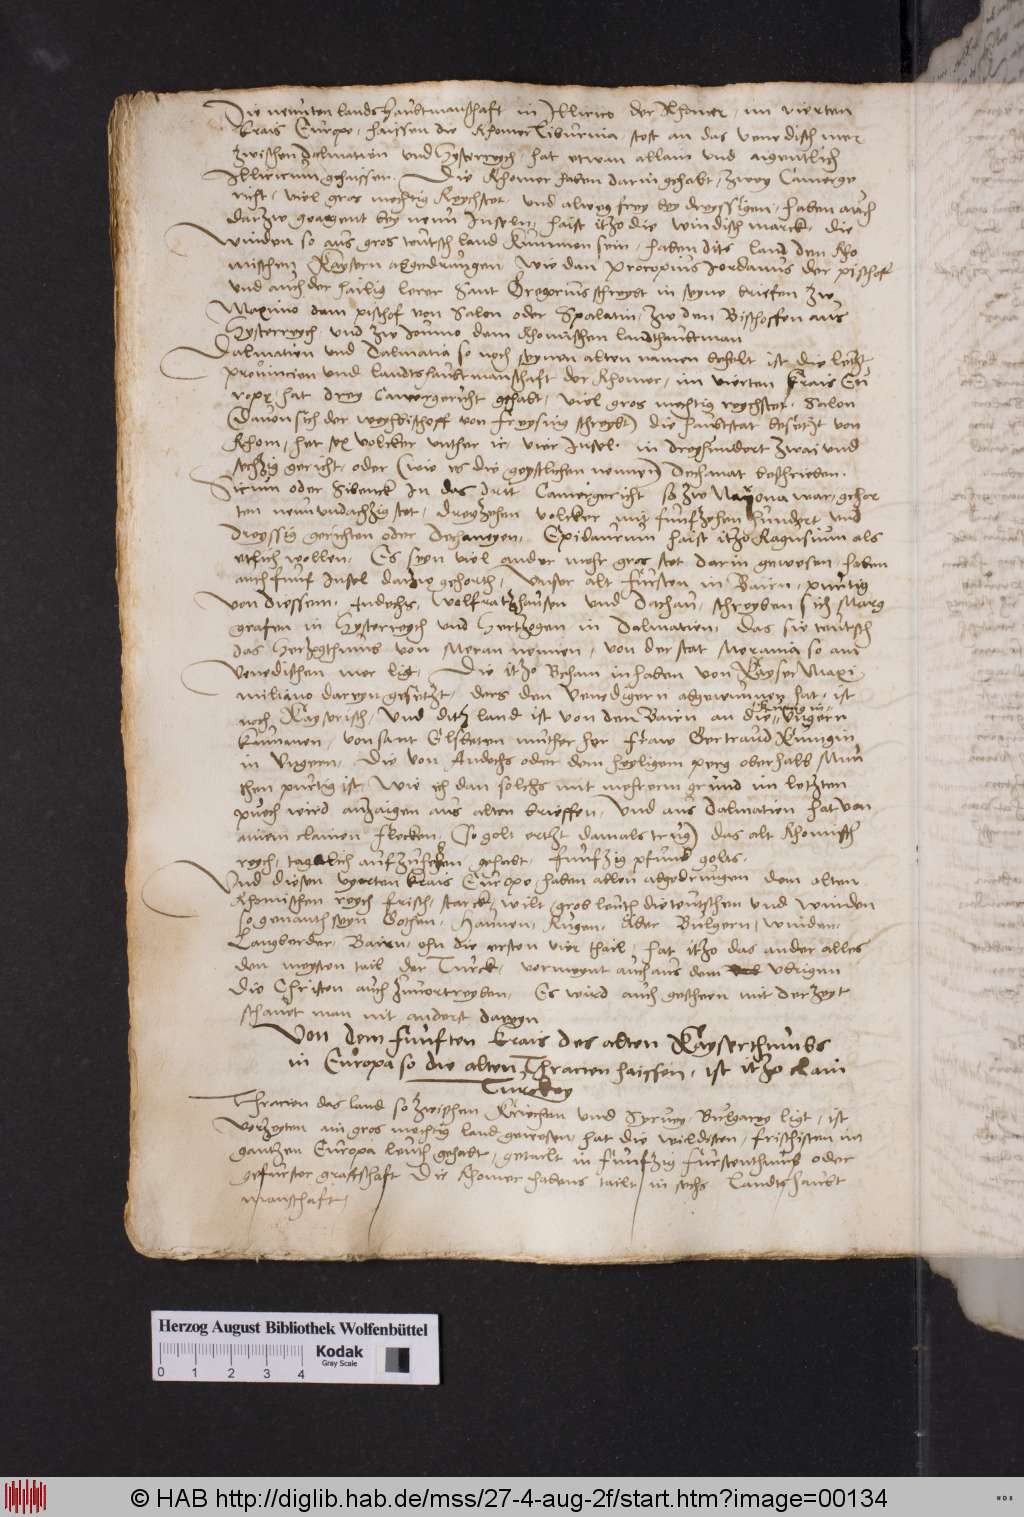 Die neunten landshaubtmanschaft in Illirico der Rhomer, im vierten
krais Europe, haissen die Rhomer Liburnia, stost an das Venedisch mer
zwischen Dalmatien und Hysterreych, hat etwan allain und aigentlich
Illiricum gehaissen. Die Rhomer haben darin gehabt, zway Camerge
richt, viel gros mechtig Reychstet, und alweg frey bey dreyssigen, haben auch
darzw geaygent bey neun Inseln, haist itzo die windisch marck, die
Winden so aus gros teutsch land kummen sein, haben dits land dem Rho
mischen Kaysern abgedrungen, wie dan Procopius Jordanus der pischof
und auch der hailig lerer Sant Gregorius schreybt in seyne briefen zw
Maximo dem pischof von Salon oder Spalatin, zw den Bischoffen aus
Hysterreych und zw Jouino dem Rhomischen landshaubtman
Dalmatien und Dalmatia so noch seynen alten namen behelt ist die letzt
provincien und landtshaubtmanschaft der Rhomer, im vierten krais Eu
rope, hat drey Camergericht gehabt, viel gros mechtig reychstet, Salon
(Davon sich der weyhbischoff von Freysing schreybt) die haubtstat besetzt von
Rhom, het sex volcker unther ir, vier Insel, in dreyhundert zwai und
sechzig gericht, oder (wie es die geystlichen nennen) Dechanat beschrieben.
Sicum oder Sibenck In das drit Camergericht so zw Narona war, gehor
ten neun undachzig stet, dreyzehen volcker mit funfzehen hundert und
dreyssig gerichten oder Dechaneyen. Epidaurum haist itzo Ragusium als
etlich wollen. Es seyn viel ander mehr gros stet darin gewesen, haben
auch funf Insel darzw gehorth, Unser alt fursten in Bairn, purtig
von Diessem, Andechs, Wolfratzhausen und Dachau, schreyben sich Marg
grafen in Hysterreych und Hertzogen in Dalmatien, das sie teutsch
das Hertzogthumb von Meran nennen, von der stat Merania so am
Venedischen mer ligt, Die itzo Beham inhaben von Kayser Maxi
miliano dareyn gesetzt, ders den Venedigern abgewunnen hat, ist
noch Kayserisch, Und ditz land ist von den Bairn an die Ungern
kummen, von sant Elsbeten muther her fraw Gertraud Kunigin
in Ungern, Die von Andechs oder dem heyligem perg oberhalb Mun
chen purtig ist, Wie ich dan solchs mit mehrerm grund im letzten
puech wird anzaigen aus alten brieffen, Und aus Dalmatien hat von
ainem clainen flecken (so golt ertzt damals trug) das alt Rhomisch
reych, taglich aufzuheben gehabt, funfzig pfund golts.
Und diesen vyerten krais Europe haben allen abgedrungen dem alten
Rhomischen reych frisch, starck, wilt, grob leuth die teutschen und winden
so genanth seyn Gothen, Haunen, Rugen, Aber Bulgern, Winden,
Langberder, Bairn, ohn die ersten vier thail, hat itzo das ander alles
den maysten tail der Turck, vermeynt auch aus dem ubrigen
die Christen auch zuvortreyben, Es wird auch geschern mit der zeyt
schauet man nit anderst dareyn
Von dem funften krais des alten Kayserthumbs
in Europa so die alten Thracien haissen, ist itzo clain
Turckey
Thracien das land so zwischen Kriechen und Syrvey, Bulgarey ligt, ist
vorzeyten ain gros mechtig land gewesen, hat die wildisten, frischisten im
gantzen Europa leuth gehabt, getailt in funfzig furstenthumb oder
gefurster grafschaft Die Rhomer habens tailt in sechs landtshaubt
manschaft,
Herzog August Bibliothek Wolfenbüttel
Kodak
Gray Scale
0 1 2 3 4
© HAB http://diglib.hab.de/mss/27-4-aug-2f/start.htm?image=00134